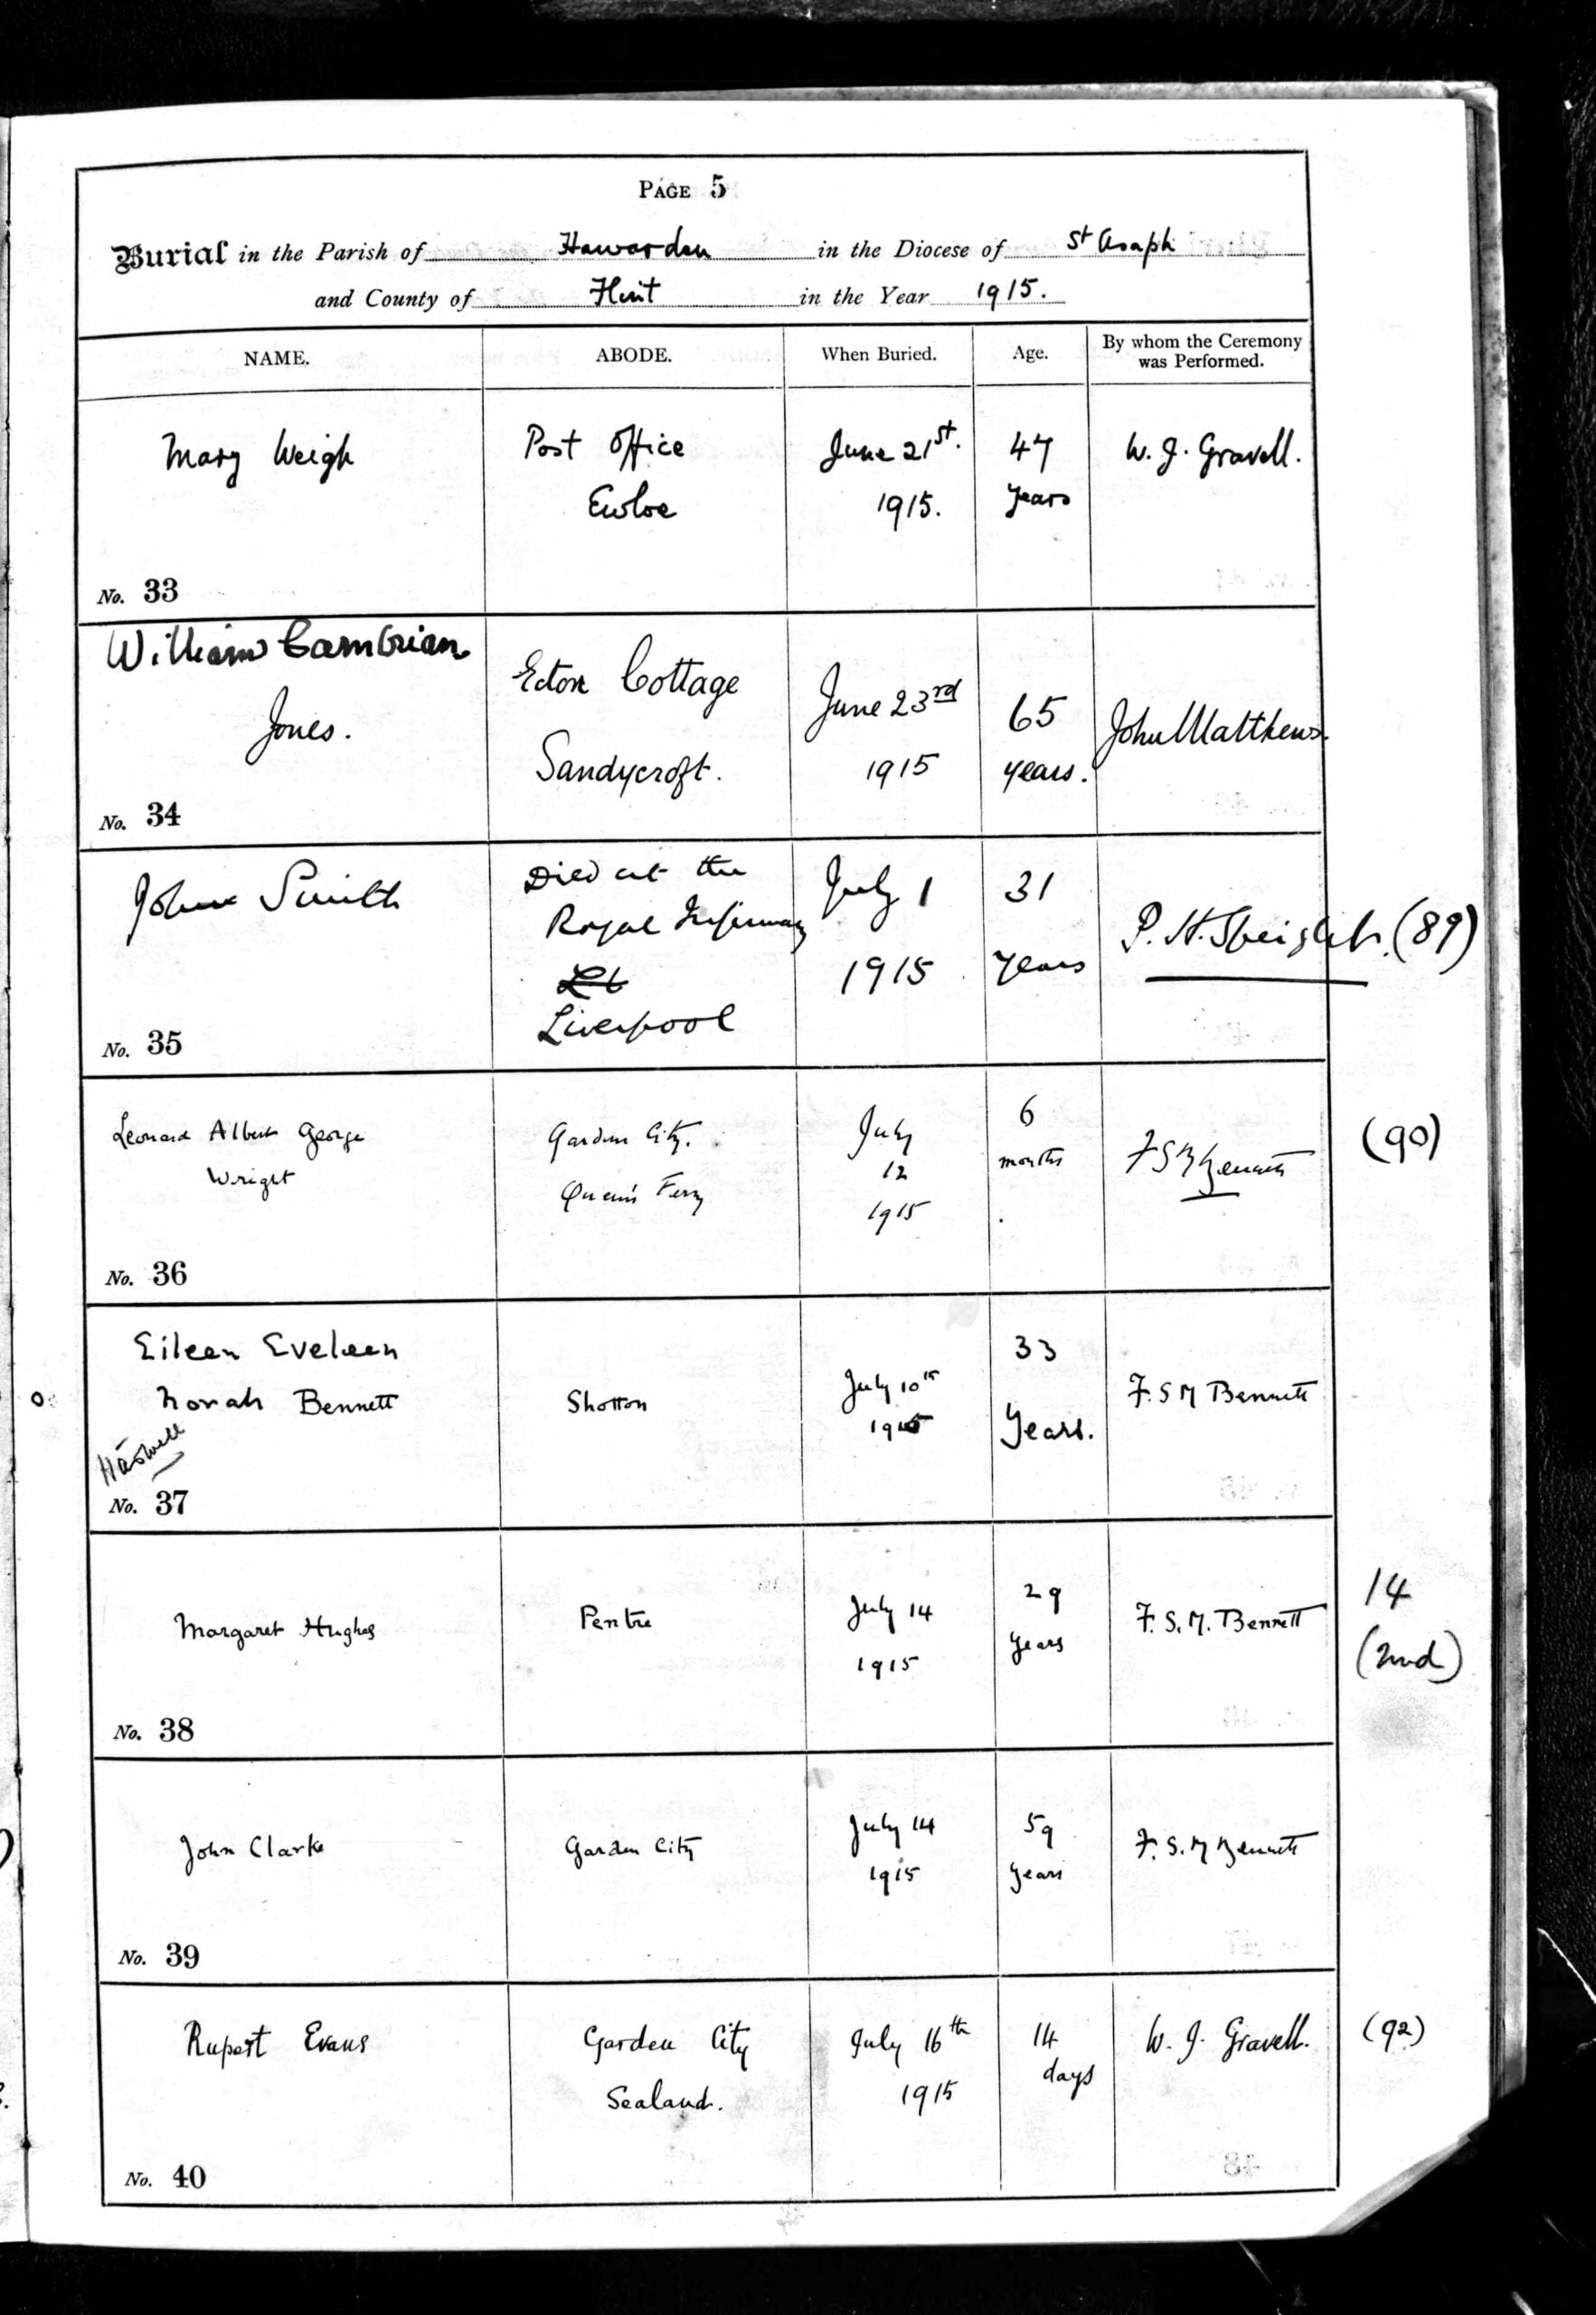 PAGE 5
Burial in the Parish of Hawarden in the Diocese of St Asaph
and County of Flint in the Year 1915.
NAME. ABODE. When Buried. Age. By whom the Ceremony was Performed.
Mary Weigh Post Office June 21st. 47 W. J. Gravell.
Ewloe 1915. years
No. 33
William Cambrian Eton Cottage June 23rd 65 John Matthews.
Jones. Sandycroft. 1915 years.
No. 34
John Smith Died at the July 1 31 P. H. (89)
Royal Infirmary 1915 years
Liverpool
No. 35
Leonard Albert George Garden City. July 6 F S M Bennett (90)
Wright Queen's Ferry 12 months
1915
No. 36
Eileen Eveleen July 10th 33 F. S M Bennett
Norah Bennett Shotton 1915 Years.
Haswell
No. 37
Margaret Hughes Pentre July 14 29 F. S. M. Bennett 14
1915 years (2nd)
No. 38
John Clarke Garden City July 14 59 F. S. M Bennett
1915 years
No. 39
Rupert Evans Garden City July 16th 14 W. J. Gravell. (92)
Sealand. 1915 days
No. 40